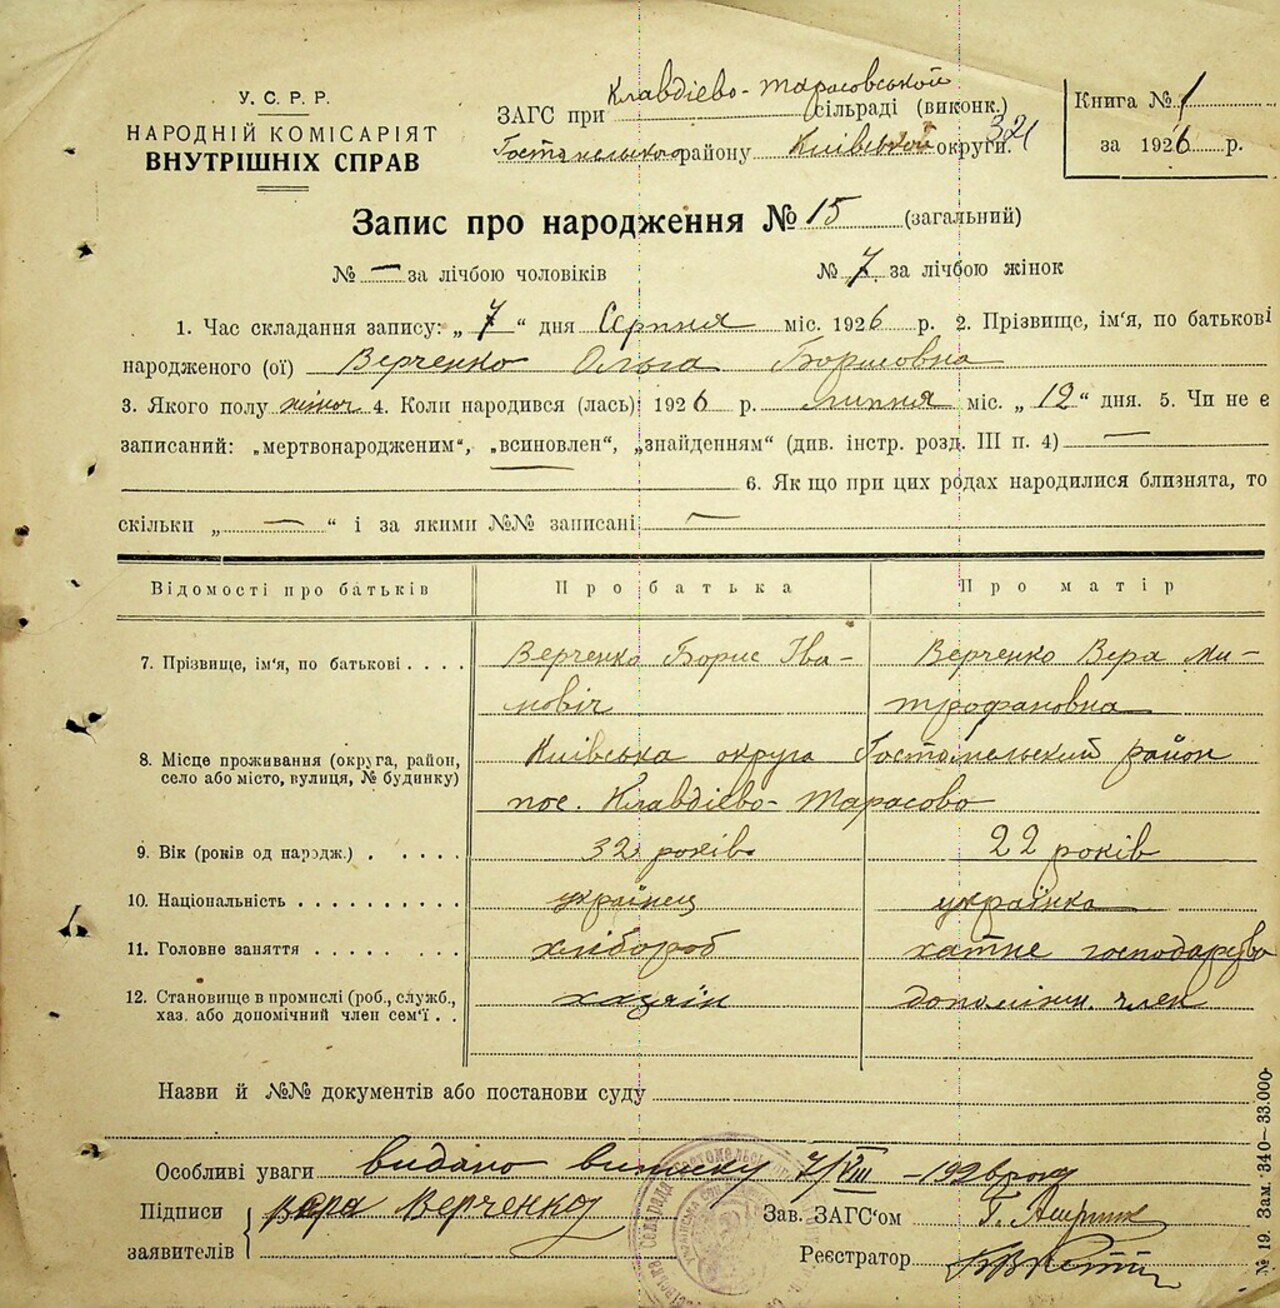 У. С. Р. Р.
НАРОДНІЙ КОМІСАРІЯТ
ВНУТРІШНІХ СПРАВ
ЗАГС при Клавдієво-Тарасовській сільраді (виконк.)
Гостомельского району Київської округи.
321
Книга № 1
за 1926 р.
Запис про народження № 15 (загальний)
№ — за лічбою чоловіків № 7 за лічбою жінок
1. Час складання запису: „ 7 “ дня Серпня міс. 1926 р. 2. Прізвище, ім'я, по батькові
народженого (ої) Верченко Ольга Борисовна
3. Якого полу жіноч 4. Коли народився (лась) 1926 р. липня міс. „ 12 “ дня. 5. Чи не є
записаний: „мертвонародженим“, „всиновлен“, „знайденням“ (див. інстр. розд. III п. 4) —
6. Як що при цих родах народилися близнята, то
скільки „ — “ і за якими №№ записані —
Відомості про батьків Про батька Про матір
7. Прізвище, ім'я, по батькові . . . . Верченко Борис Іва- Верченко Вера Ми-
нович трофановна
8. Місце проживання (округа, район, Київська округа Гостомельский район
село або місто, вулиця, № будинку) пос. Клавдієво-Тарасово
9. Вік (років од народж.) . . . . . 32 років 22 років
10. Національність . . . . . . . . . . українец українка
11. Головне заняття . . . . . . . . хлібороб хатне господарство
12. Становище в промислі (роб., служб., хазяїн допоміжн. член
хаз. або допомічний член сем'ї . .
Назви й №№ документів або постанови суду
Особливі уваги видано виписку 7/VIII – 1926 року
Підписи Вера Верченко Зав. ЗАГС'ом
заявителів Реєстратор
№ 19. Зам. 340–33.000